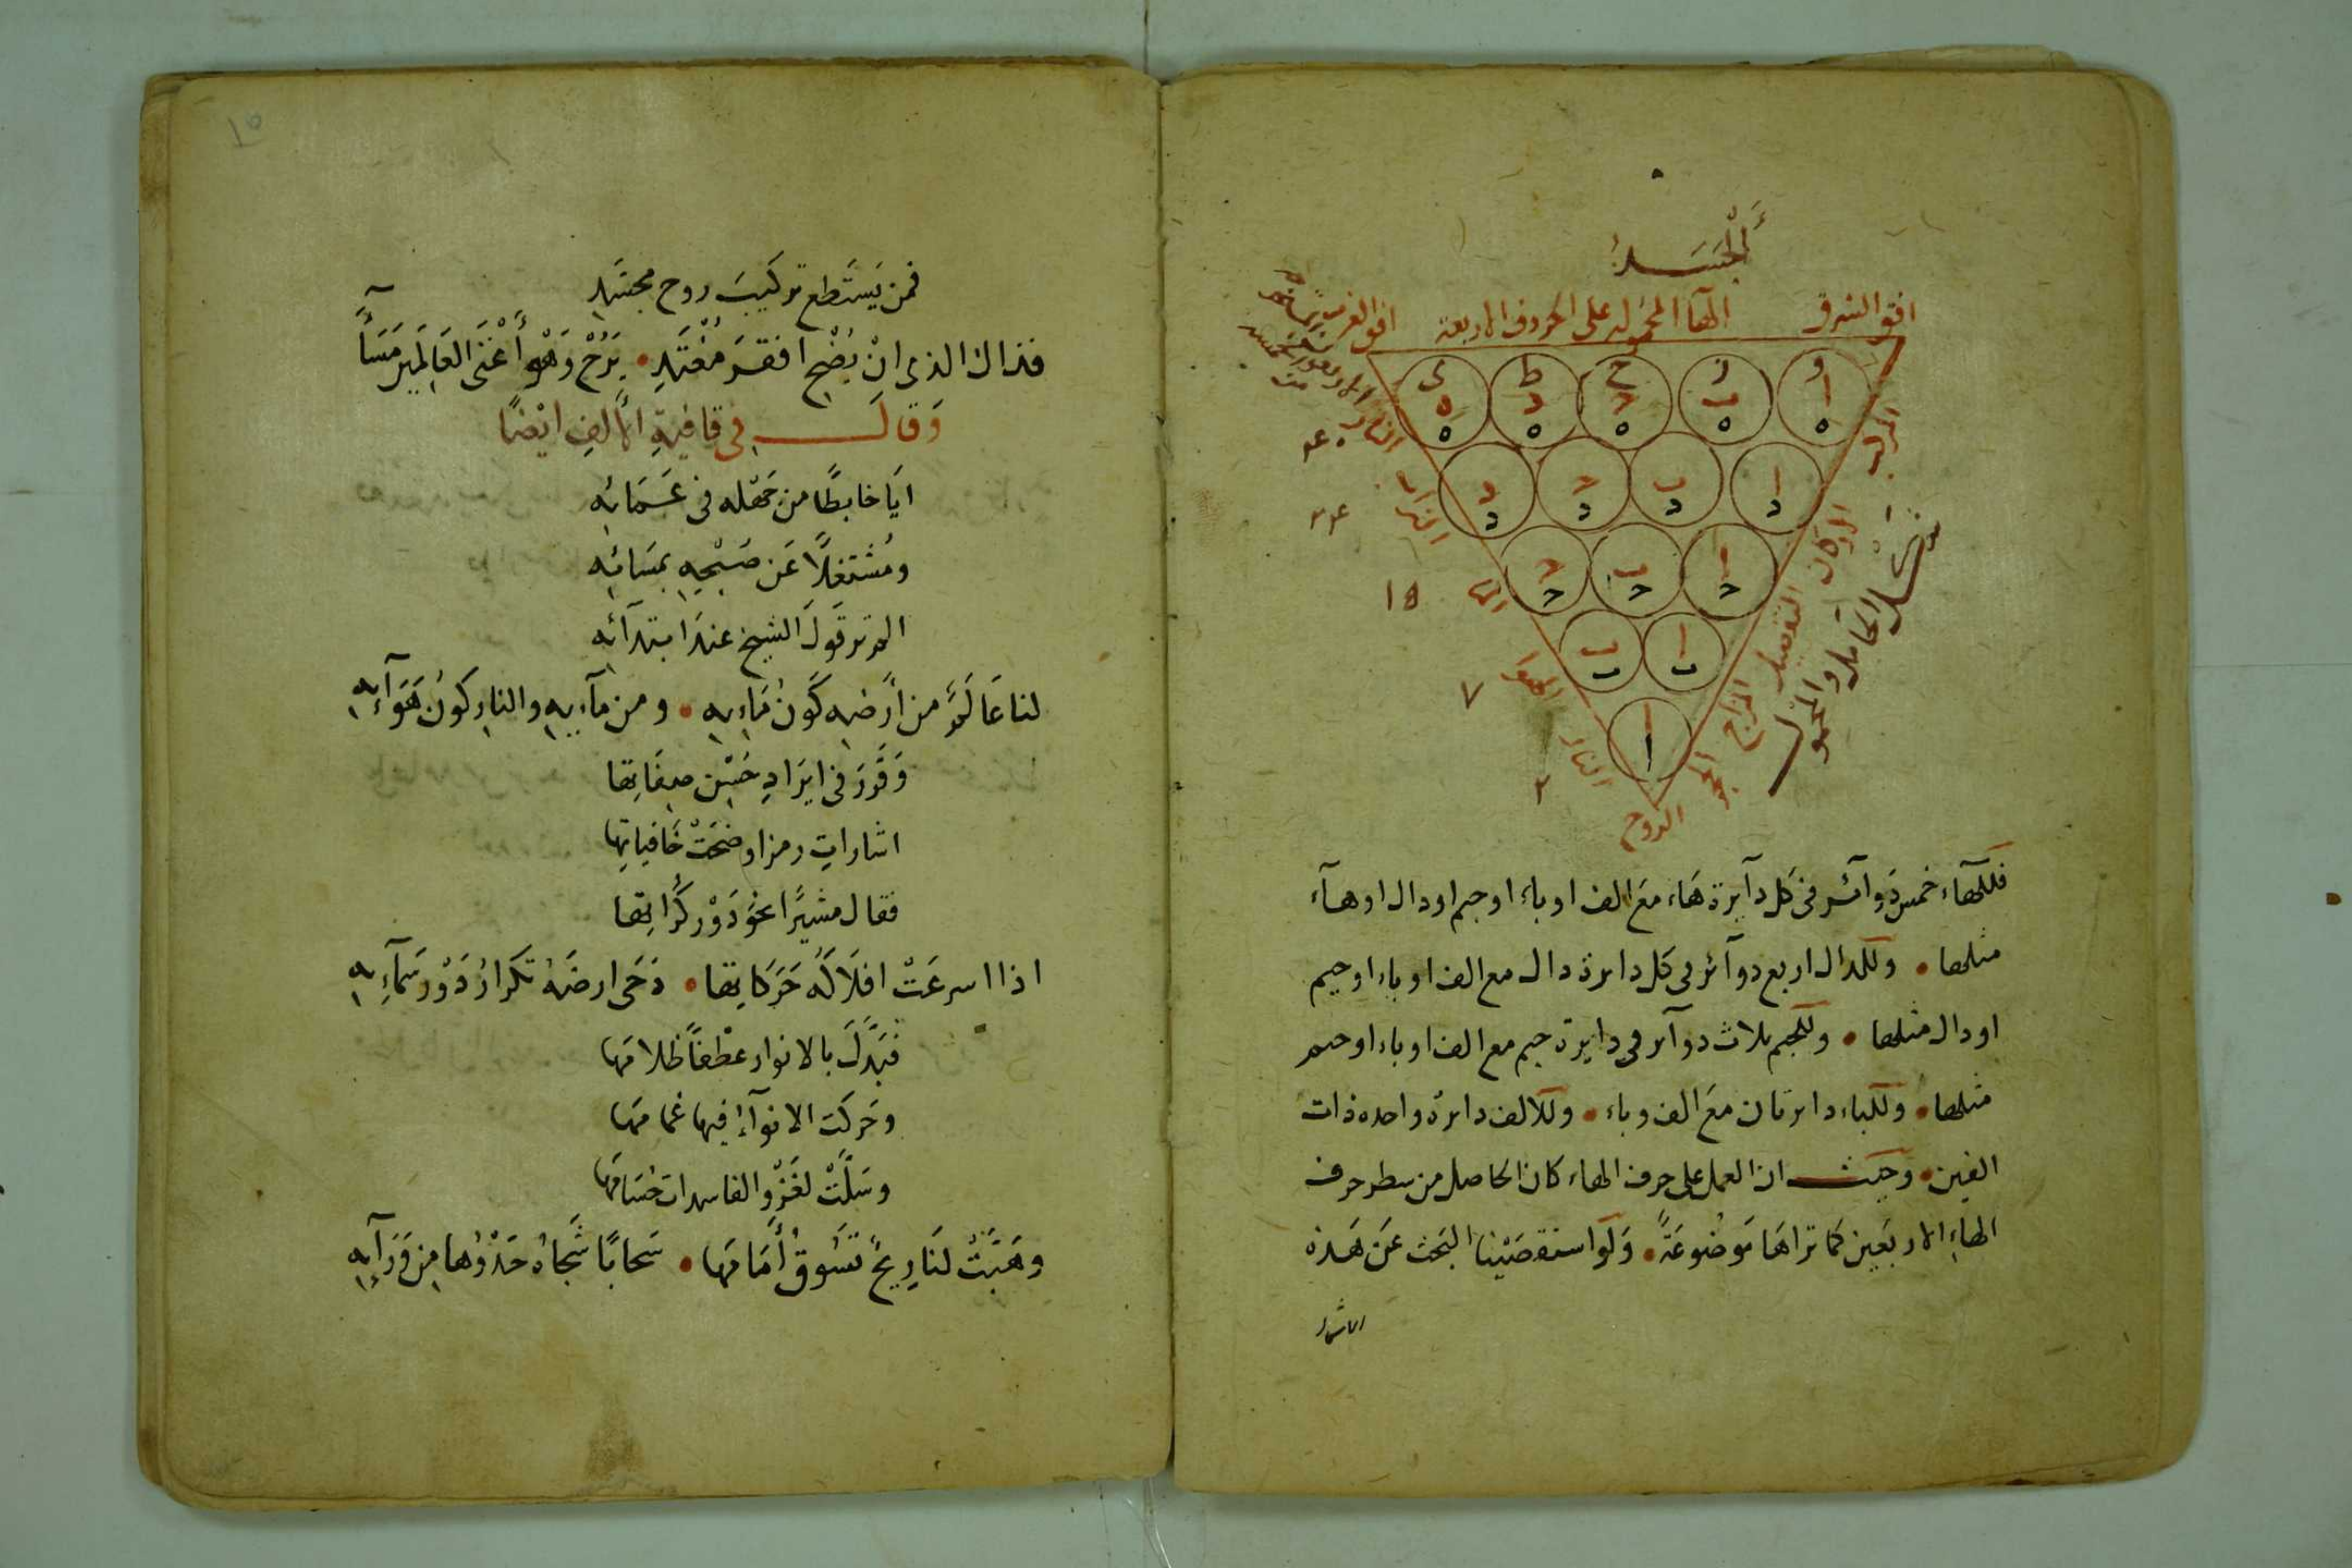 الجسد
افق الشرق
الهاء المحموله على الحروف الاربعة
افق الغرب
و ز ح ط ى
ا ب ج د ه
ه ه ه ه ه
ا ب ج د
د د د د
ا ب ج
ج ج ج
ا ب
ب ب
ا
ا
المركب
الاركان
التفصيل
المزاج
الروح
النار
الهوا
الما
التراب
النار
٢
٧
١٥
شكل الحامل والمحمول
فللهاء خمس دوائر فى كل دايرة هاء مع الف او باء او جيم او دال او هاء
مثلها • وللدال اربع دوائر فى كل دايرة دال مع الف او باء او جيم
او دال مثلها • وللجيم ثلاث دوائر فى دايرة جيم مع الف او باء او جيم
مثلها • وللباء دايرتان مع الف وباء • وللالف دايرة واحده ذات
الفين • وحيث ان العمل على حرف الهاء كان الحاصل من سطر حرف
الهاء الاربعين كما تراها موضوعة • ولو استقصينا البحث عن هذه
١٥
فمن يستطع تركيب روح بجسد
فذاك الذى ان يضح افقر مغتد • يرح وهو أغنى العالمين مسآء
وقال فى قافية الالف ايضا
ايا خابطا من جهله فى عمائه
ومشتغلا عن صبحه بمسائه
الم تر قول الشيخ عند ابتدآئه
لنا عالم من أرضه كون مائه • ومن مآئه والنار كون هوآئه
وقرر فى ايراد حسن صفاتها
اشارات رمز اوضحت خافياتها
فقال مشيرا نحو دور كراتها
اذا اسرعت افلاكه حركاتها • دحى ارضه تكرار دور سمآئه
فبدل بالانوار عطفا ظلامها
وحركت الانوآء فيها غمامها
وسلت لغزو الفاسدات حسامها
وهبت لنا ريح تسوق أمامها • سحابا شجاه حدوها من ورآئه